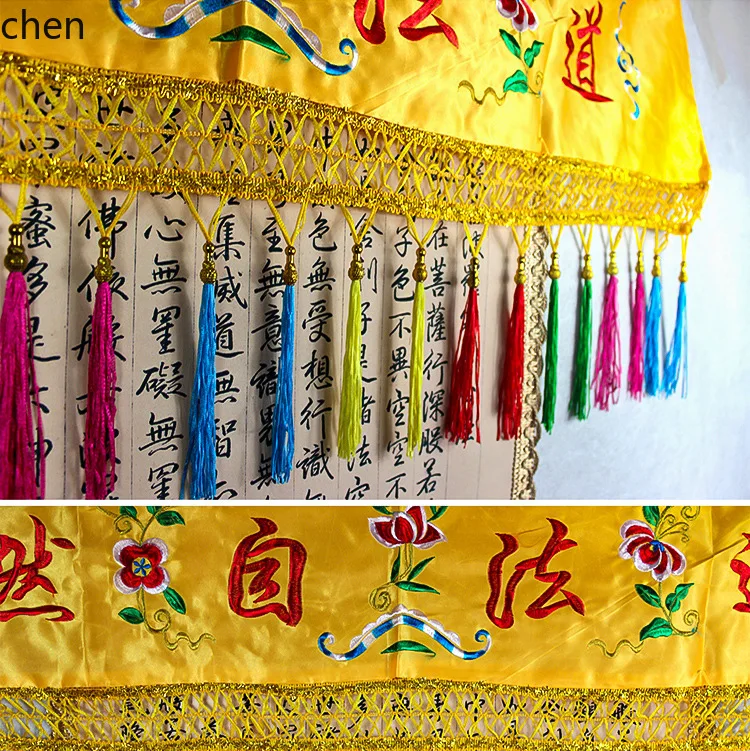 chen
道法
在菩薩行深般若
子色不異空空不
舍利子是諸法空
色無受想行識無
至無意識界無
集滅道無智
心無罣礙無罣
佛依般
蜜多是大神
道法自然